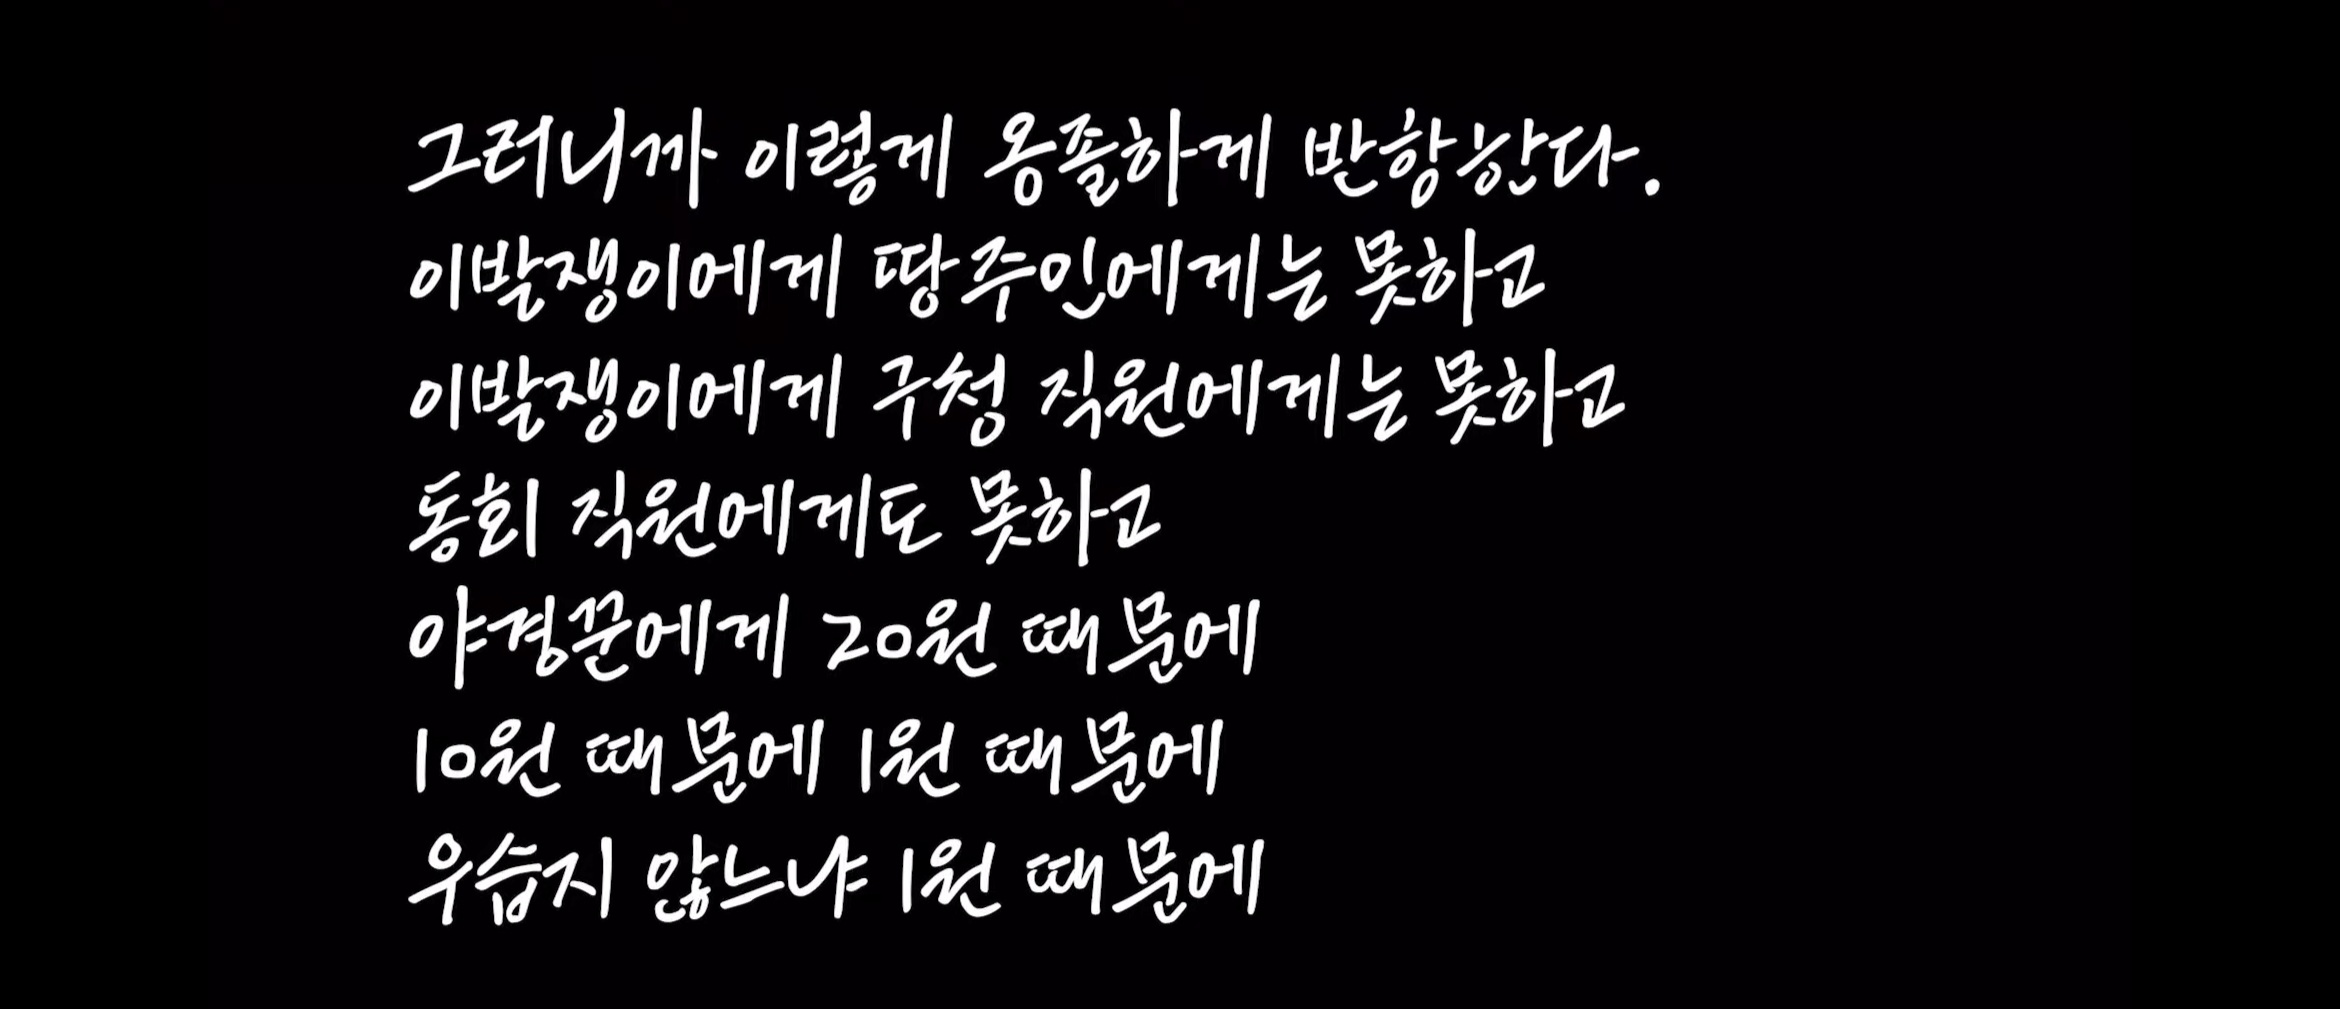 그러니까 이렇게 옹졸하게 반항한다.
이발쟁이에게 땅주인에게는 못하고
이발쟁이에게 구청 직원에게는 못하고
동회 직원에게도 못하고
야경꾼에게 20원 때문에
10원 때문에 1원 때문에
우습지 않느냐 1원 때문에